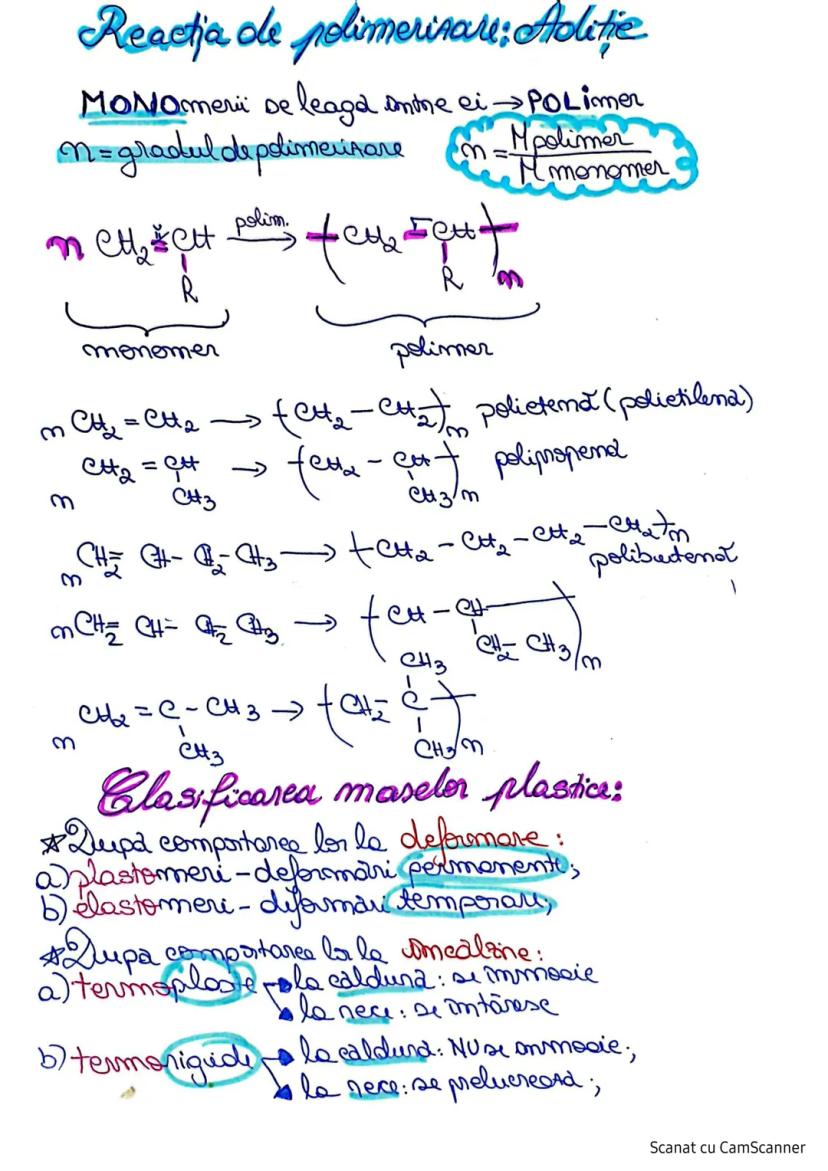 Reacția de polimerizare: Adiție
MONOmerii se leagă între ei → POLimer
n = gradul de polimerizare
n = Mpolimer / Mmonomer
n CH₂ = CH polim. → ( CH₂ - CH )n
R R
monomer polimer
n CH₂ = CH₂ → ( CH₂ - CH₂ )n polietenă (polietilenă)
n CH₂ = CH → ( CH₂ - CH )n polipropenă
CH₃ CH₃
n CH₂= CH- CH₂- CH₃ → ( CH₂ - CH₂ - CH₂ - CH₂ )n
polibutenă
n CH₂= CH- CH₂- CH₃ → ( CH - CH )n
CH₂- CH₃
CH₃
n CH₂ = C - CH₃ → ( CH₂- C )n
CH₃ CH₃
Clasificarea maselor plastice:
*După comportarea lor la deformare:
a) plastomeri - deformări permanente;
b) elastomeri - diformări temporare;
*După comportarea lor la încălzire:
a) termoplaste la caldură: se inmoaie
la rece: se întăresc
b) termorigide la caldură: NU se inmoaie;
la rece: se prelucrează;
Scanat cu CamScanner